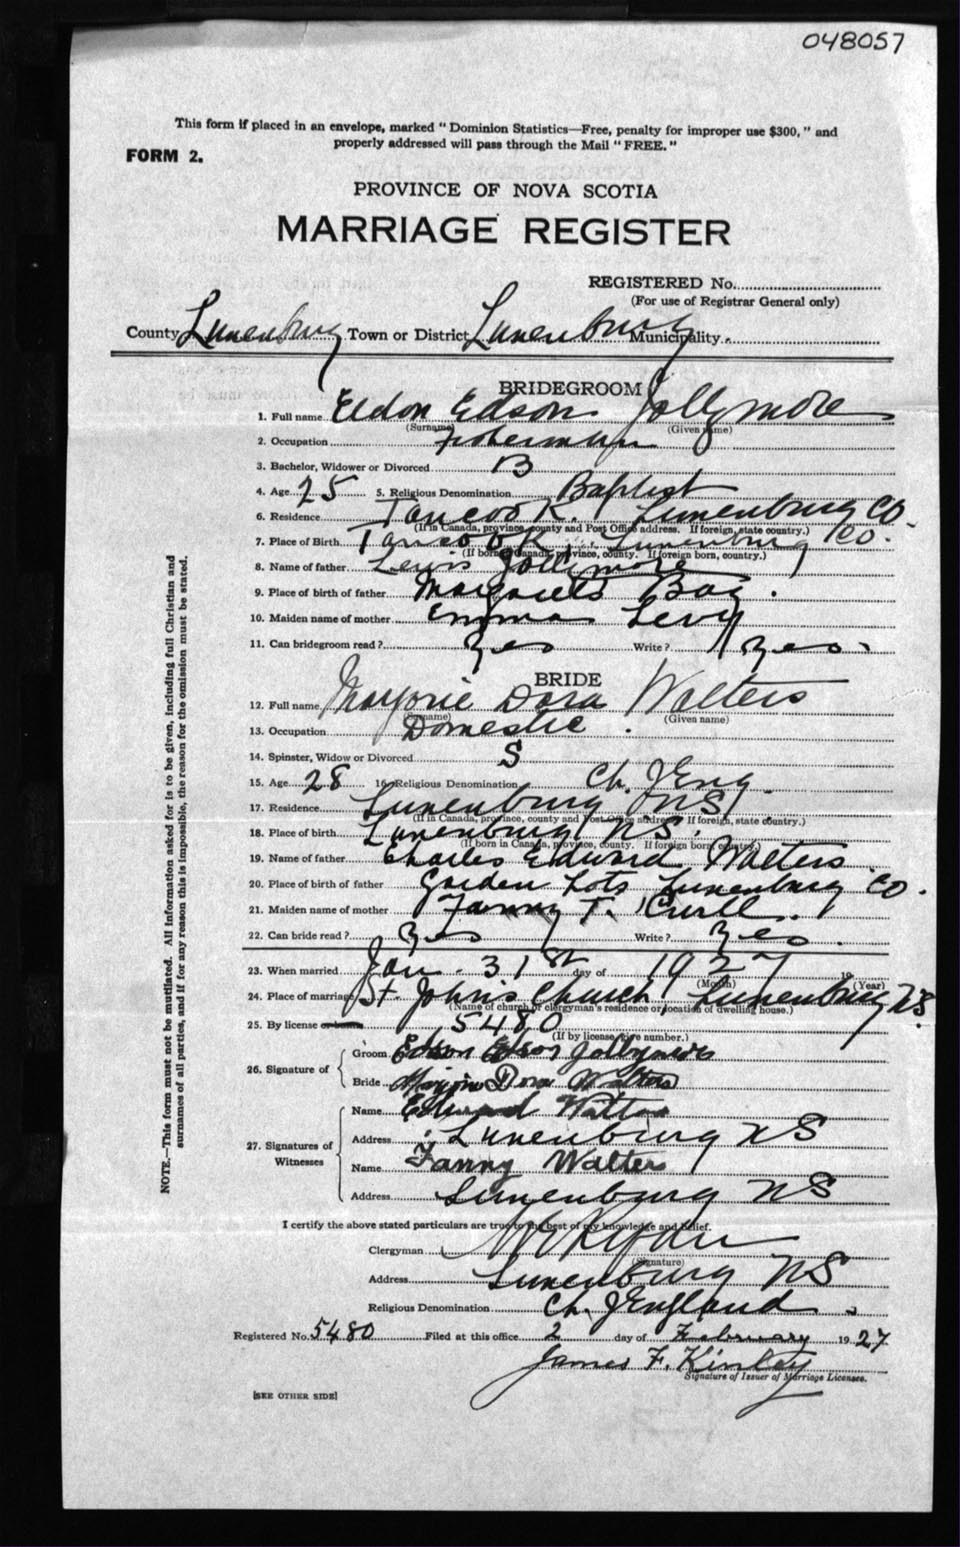 048057
This form if placed in an envelope, marked "Dominion Statistics—Free, penalty for improper use $300," and
properly addressed will pass through the Mail "FREE."
FORM 2.
PROVINCE OF NOVA SCOTIA
MARRIAGE REGISTER
REGISTERED No.
(For use of Registrar General only)
County Lunenburg Town or District Lunenburg Municipality
BRIDEGROOM
1. Full name Eldon Edson Jollymore
(Surname) (Given name)
2. Occupation fisherman
3. Bachelor, Widower or Divorced B
4. Age 25 5. Religious Denomination Baptist
6. Residence Tancook, Lunenburg Co.
(If in Canada, province, county and Post Office address. If foreign, state country.)
7. Place of Birth Tancook, Lunenburg Co.
(If born in Canada, province, county. If foreign born, country.)
8. Name of father Lewis Jollimore
9. Place of birth of father Margarets Bay.
10. Maiden name of mother Emma Levy
11. Can bridegroom read? Yes Write? Yes
BRIDE
12. Full name Marjorie Dora Walters
(Surname) (Given name)
13. Occupation Domestic.
14. Spinster, Widow or Divorced S
15. Age 28 16. Religious Denomination Ch. of Eng.
17. Residence Lunenburg NS
(If in Canada, province, county and Post Office address. If foreign, state country.)
18. Place of birth Lunenburg NS.
(If born in Canada, province, county. If foreign born, country.)
19. Name of father Charles Edward Walters
20. Place of birth of father Garden Lots Lunenburg Co.
21. Maiden name of mother Fanny T.
22. Can bride read? Yes Write? Yes.
23. When married Jan. 31st day of 1927 19
(Month) (Year)
24. Place of marriage St. John's Church, Lunenburg NS.
(Name of church or clergyman's residence or location of dwelling house.)
25. By license 5480
(If by license, give number.)
26. Signature of
Groom Edson Jollymore
Bride Marjorie Dora Walters
27. Signatures of Witnesses
Name Edward
Address Lunenburg NS
Name Fanny Walters
Address Lunenburg NS
I certify the above stated particulars are true to the best of my knowledge and belief.
Clergyman
(Signature)
Address Lunenburg NS
Religious Denomination Ch. of England
Registered No. 5480 Filed at this office 2 day of February 1927
James F. Kinley
Signature of Issuer of Marriage Licenses.
[SEE OTHER SIDE]
NOTE.—This form must not be mutilated. All information asked for is to be given, including full Christian and
surnames of all parties, and if for any reason this is impossible, the reason for the omission must be stated.